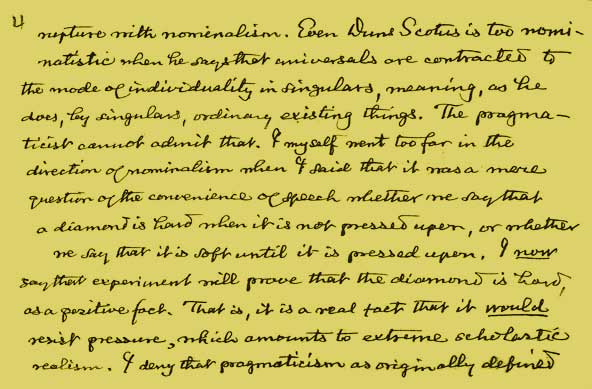 4
rupture with nominalism. Even Duns Scotus is too nomi-
nalistic when he says that universals are contracted to
the mode of individuality in singulars, meaning, as he
does, by singulars, ordinary existing things. The pragma-
ticist cannot admit that. I myself went too far in the
direction of nominalism when I said that it was a mere
question of the convenience of speech whether we say that
a diamond is hard when it is not pressed upon, or whether
we say that it is soft until it is pressed upon. I now
say that experiment will prove that the diamond is hard,
as a positive fact. That is, it is a real fact that it would
resist pressure, which amounts to extreme scholastic
realism. I deny that pragmaticism as originally defined